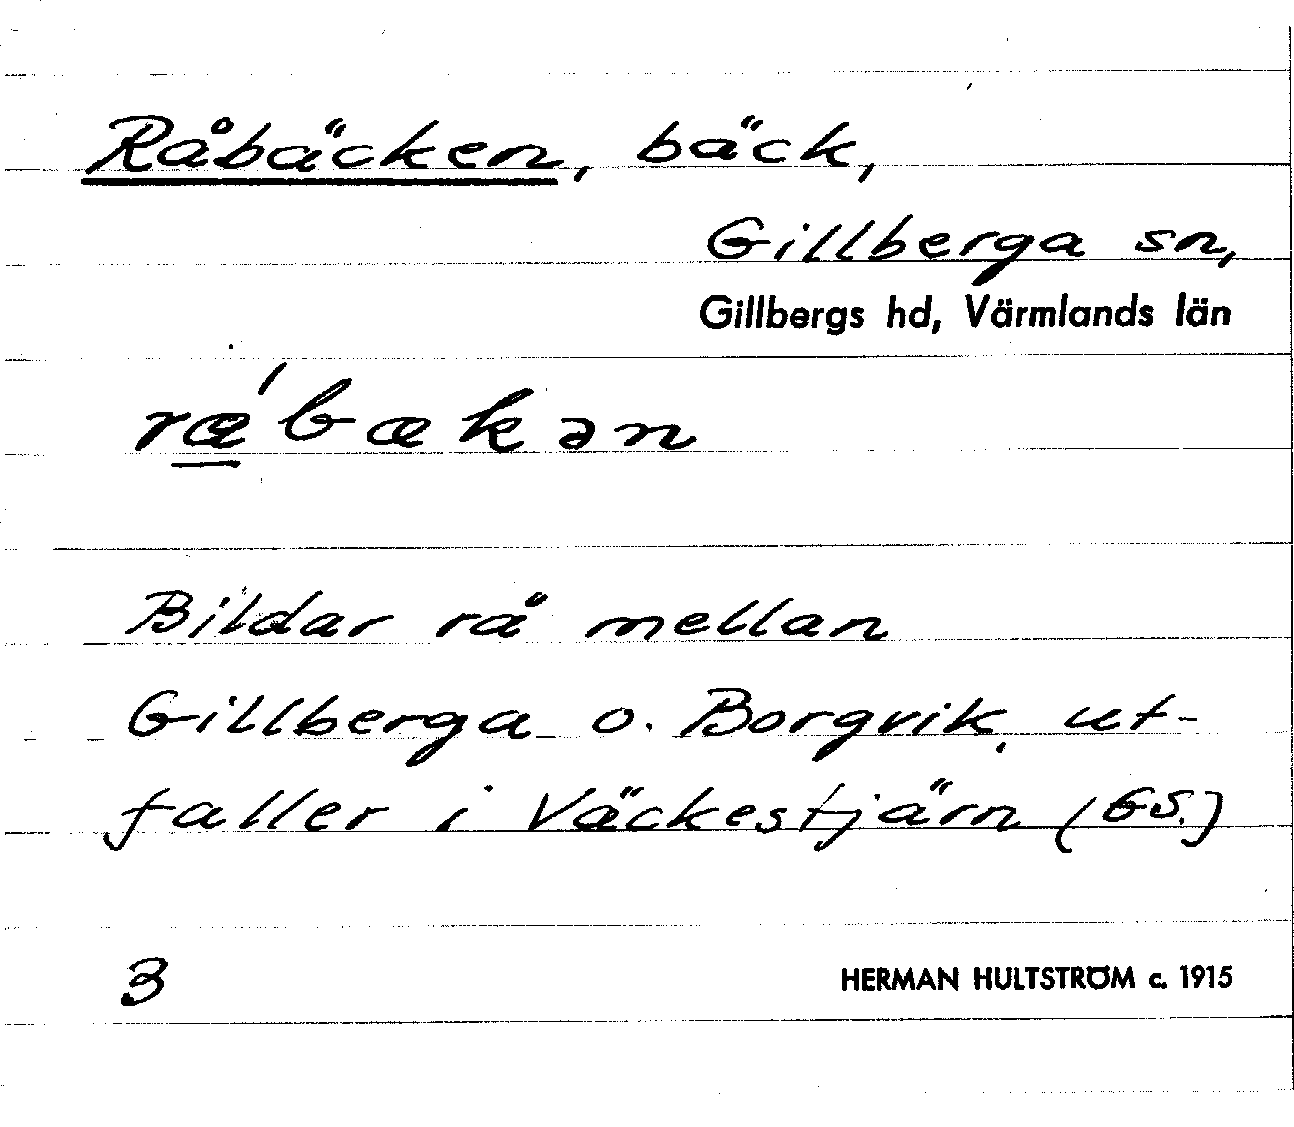 Råbäcken, bäck,
Gillberga sn,
Gillbergs hd, Värmlands län
rǽ̲bækən
Bildar rå mellan
Gillberga o. Borgvik, ut-
faller i Väckestjärn (GS.)
3
HERMAN HULTSTRÖM c. 1915